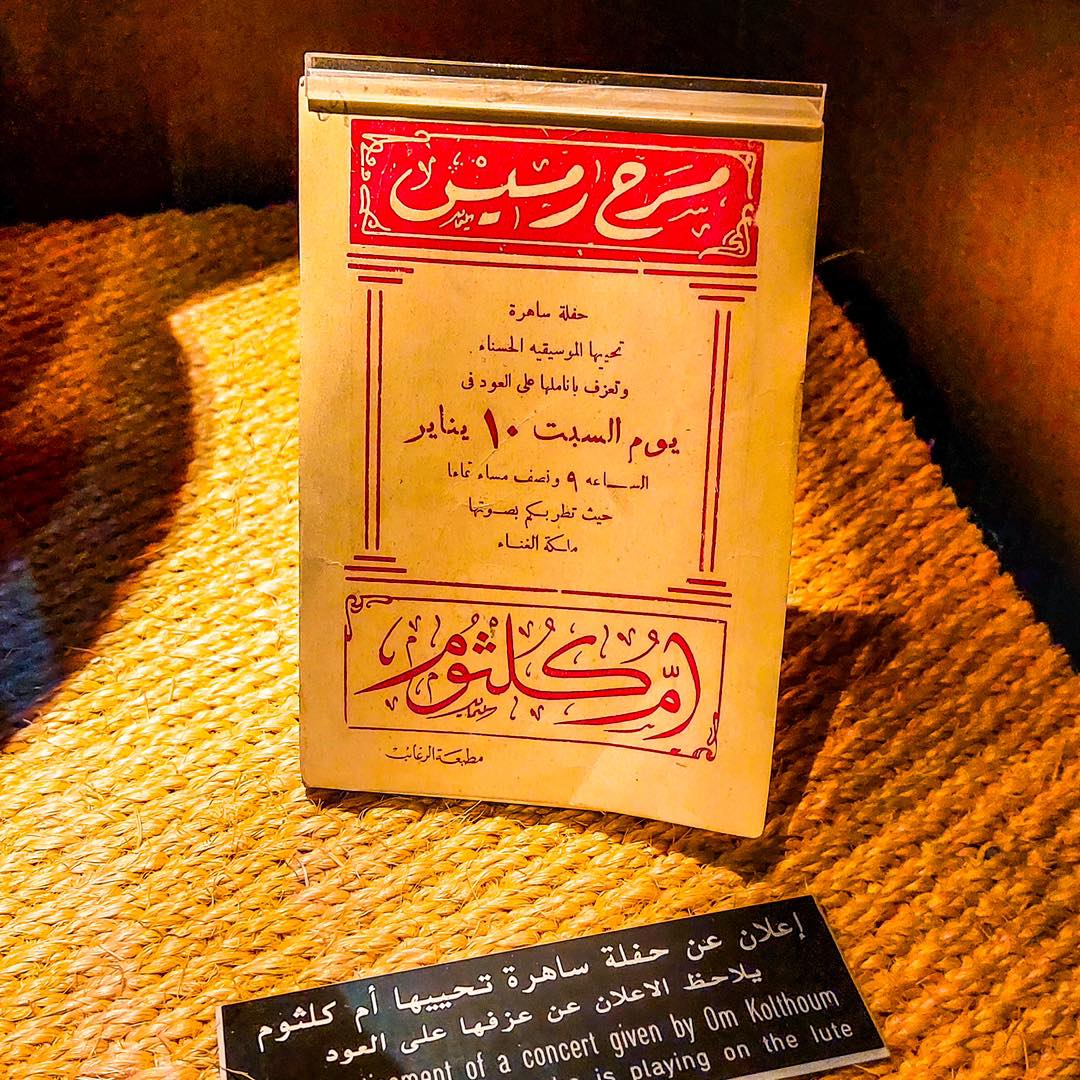 مسرح رمسيس
حفلة ساهرة
تحييها الموسيقيه الحسناء
وتعزف باناملها على العود فى
يوم السبت ١٠ يناير
الساعه ٩ ونصف مساء تماما
حيث تطربكم بصوتها
ملكة الغناء
أم كلثوم
مطبعة الرغائب
إعلان عن حفلة ساهرة تحييها أم كلثوم
يلاحظ الاعلان عن عزفها على العود
of a concert given by Om Kolthoum
is playing on the lute